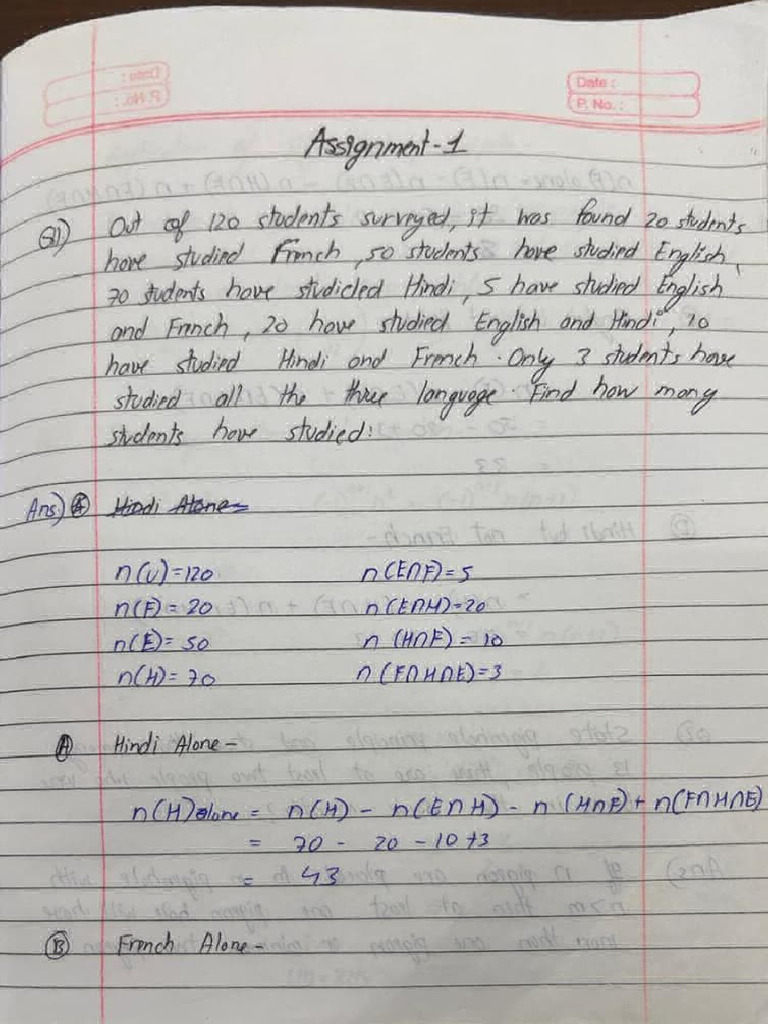 Date :
P. No. :
Assignment-1
Q1) Out of 120 students surveyed, it was found 20 students
have studied French, 50 students have studied English,
70 students have studicled Hindi, 5 have studied English
and French, 20 have studied English and Hindi, 10
have studied Hindi and French. Only 3 students have
studied all the three language. Find how many
students have studied:
Ans) A Hindi Alone=
n(U)=120 n(E∩F)=5
n(F)=20 n(E∩H)=20
n(E)=50 n(H∩F)=10
n(H)=70 n(F∩H∩E)=3
A Hindi Alone-
n(H)alone = n(H) - n(E∩H) - n(H∩F) + n(F∩H∩E)
= 70 - 20 - 10+3
= 43
B French Alone-